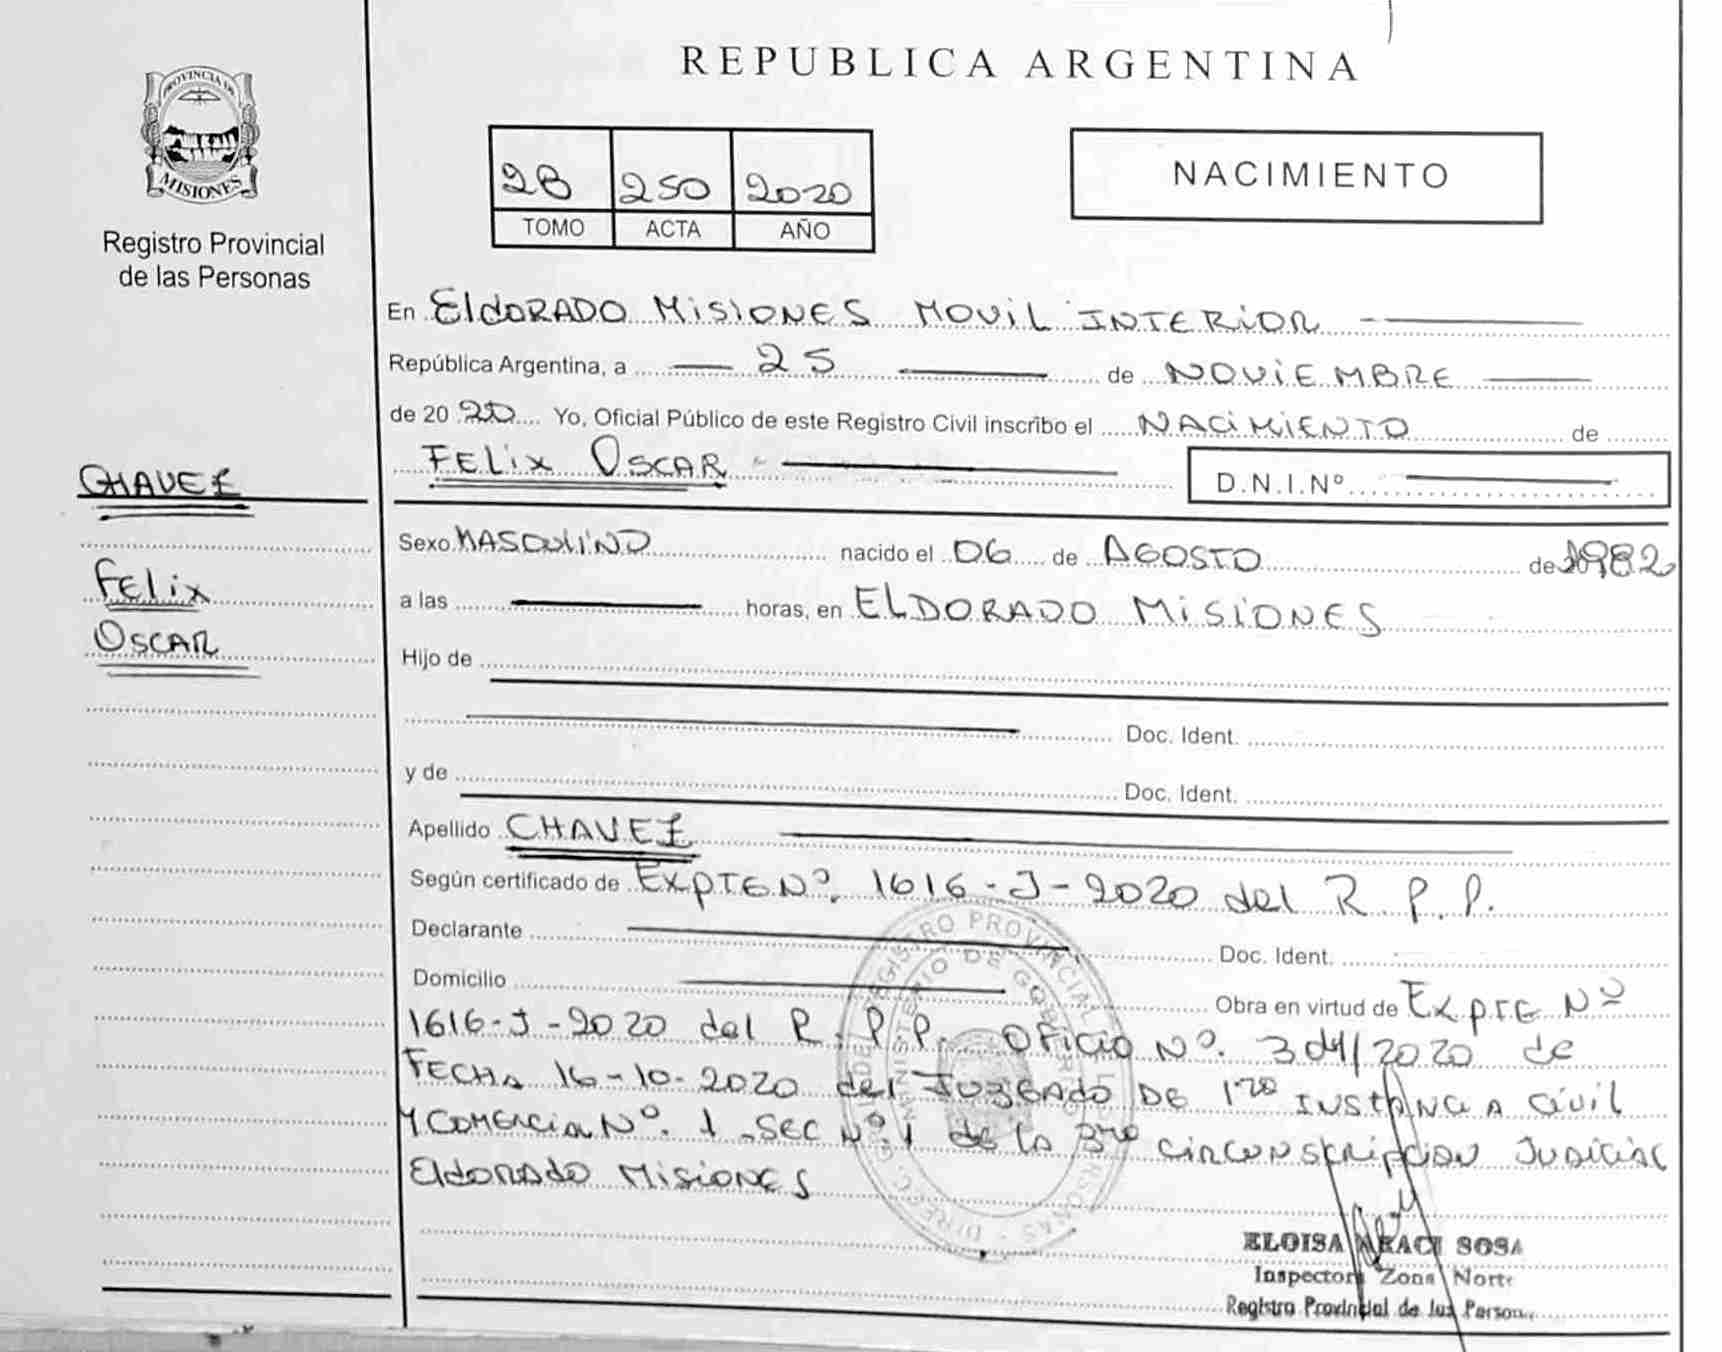 REPUBLICA ARGENTINA
PROVINCIA DE
MISIONES
Registro Provincial
de las Personas
2B 250 2020
TOMO ACTA AÑO
NACIMIENTO
En ElDORADO MISIONES MOVIL INTERIOR
República Argentina, a 25 de NOVIEMBRE
de 2020 Yo, Oficial Público de este Registro Civil inscribo el NACIMIENTO de
FELIX OSCAR D.N.I.Nº
CHAVEZ
FELIX
OSCAR
Sexo MASCULINO nacido el 06 de AGOSTO de 1982
a las horas, en ELDORADO MISIONES
Hijo de
Doc. Ident.
y de Doc. Ident.
Apellido CHAVEZ
Según certificado de EXPTE Nº. 1616-J-2020 del R.P.P.
Declarante Doc. Ident.
Domicilio Obra en virtud de EXPTE Nº
1616-J-2020 del R.P.P. OFICIO Nº. /2020 de
FECHA 16-10-2020 del JUZGADO DE 1ra INSTANCIA Civil
Y COMERCIAL Nº. 1 SEC Nº. 1 de la 3ra CIRCUNSCRIPCION JUDICIAL
ElDORADO MISIONES
ELOISA ARACI SOSA
Inspectora Zona Norte
Registro Provincial de las Person